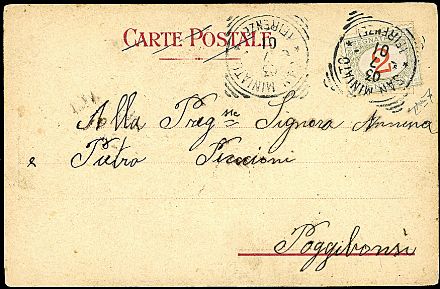 CARTE POSTALE
SAN MINIATO (FIRENZE)
SAN MINIATO (FIRENZE)
2
Alla Preg.me Signora
e Pietro
Poggibonsi